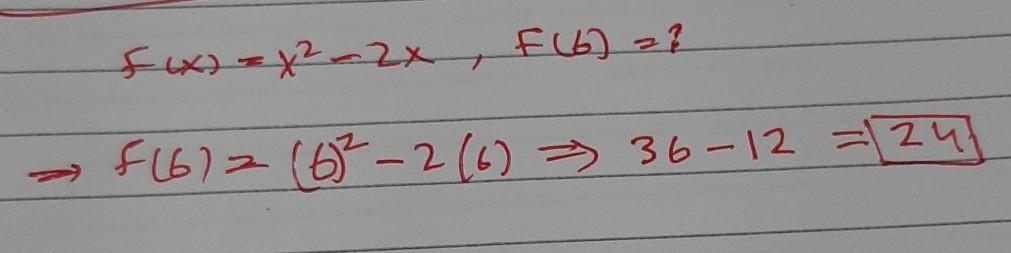 f(x) = x² - 2x , F(6) = ?
→ f(6) = (6)² - 2(6) ⇒ 36 - 12 = 24